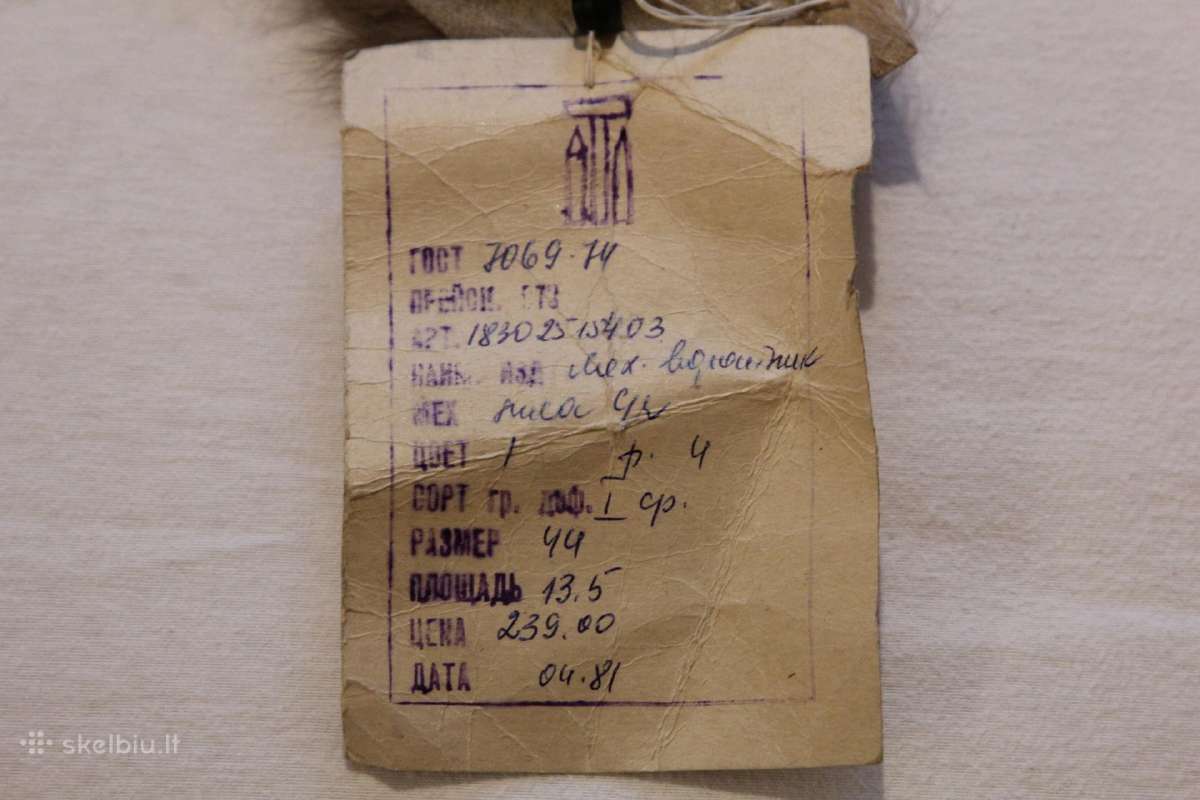 ГОСТ 7069-74
ПРЕЙСК. 073
АРТ. 18302515403
НАИМ. ИЗД мех. воротник
МЕХ лиса
ЦВЕТ 1 р. 4
СОРТ гр. деф. I ср.
РАЗМЕР 44
ПЛОЩАДЬ 13.5
ЦЕНА 239.00
ДАТА 04.81
skelbiu.lt